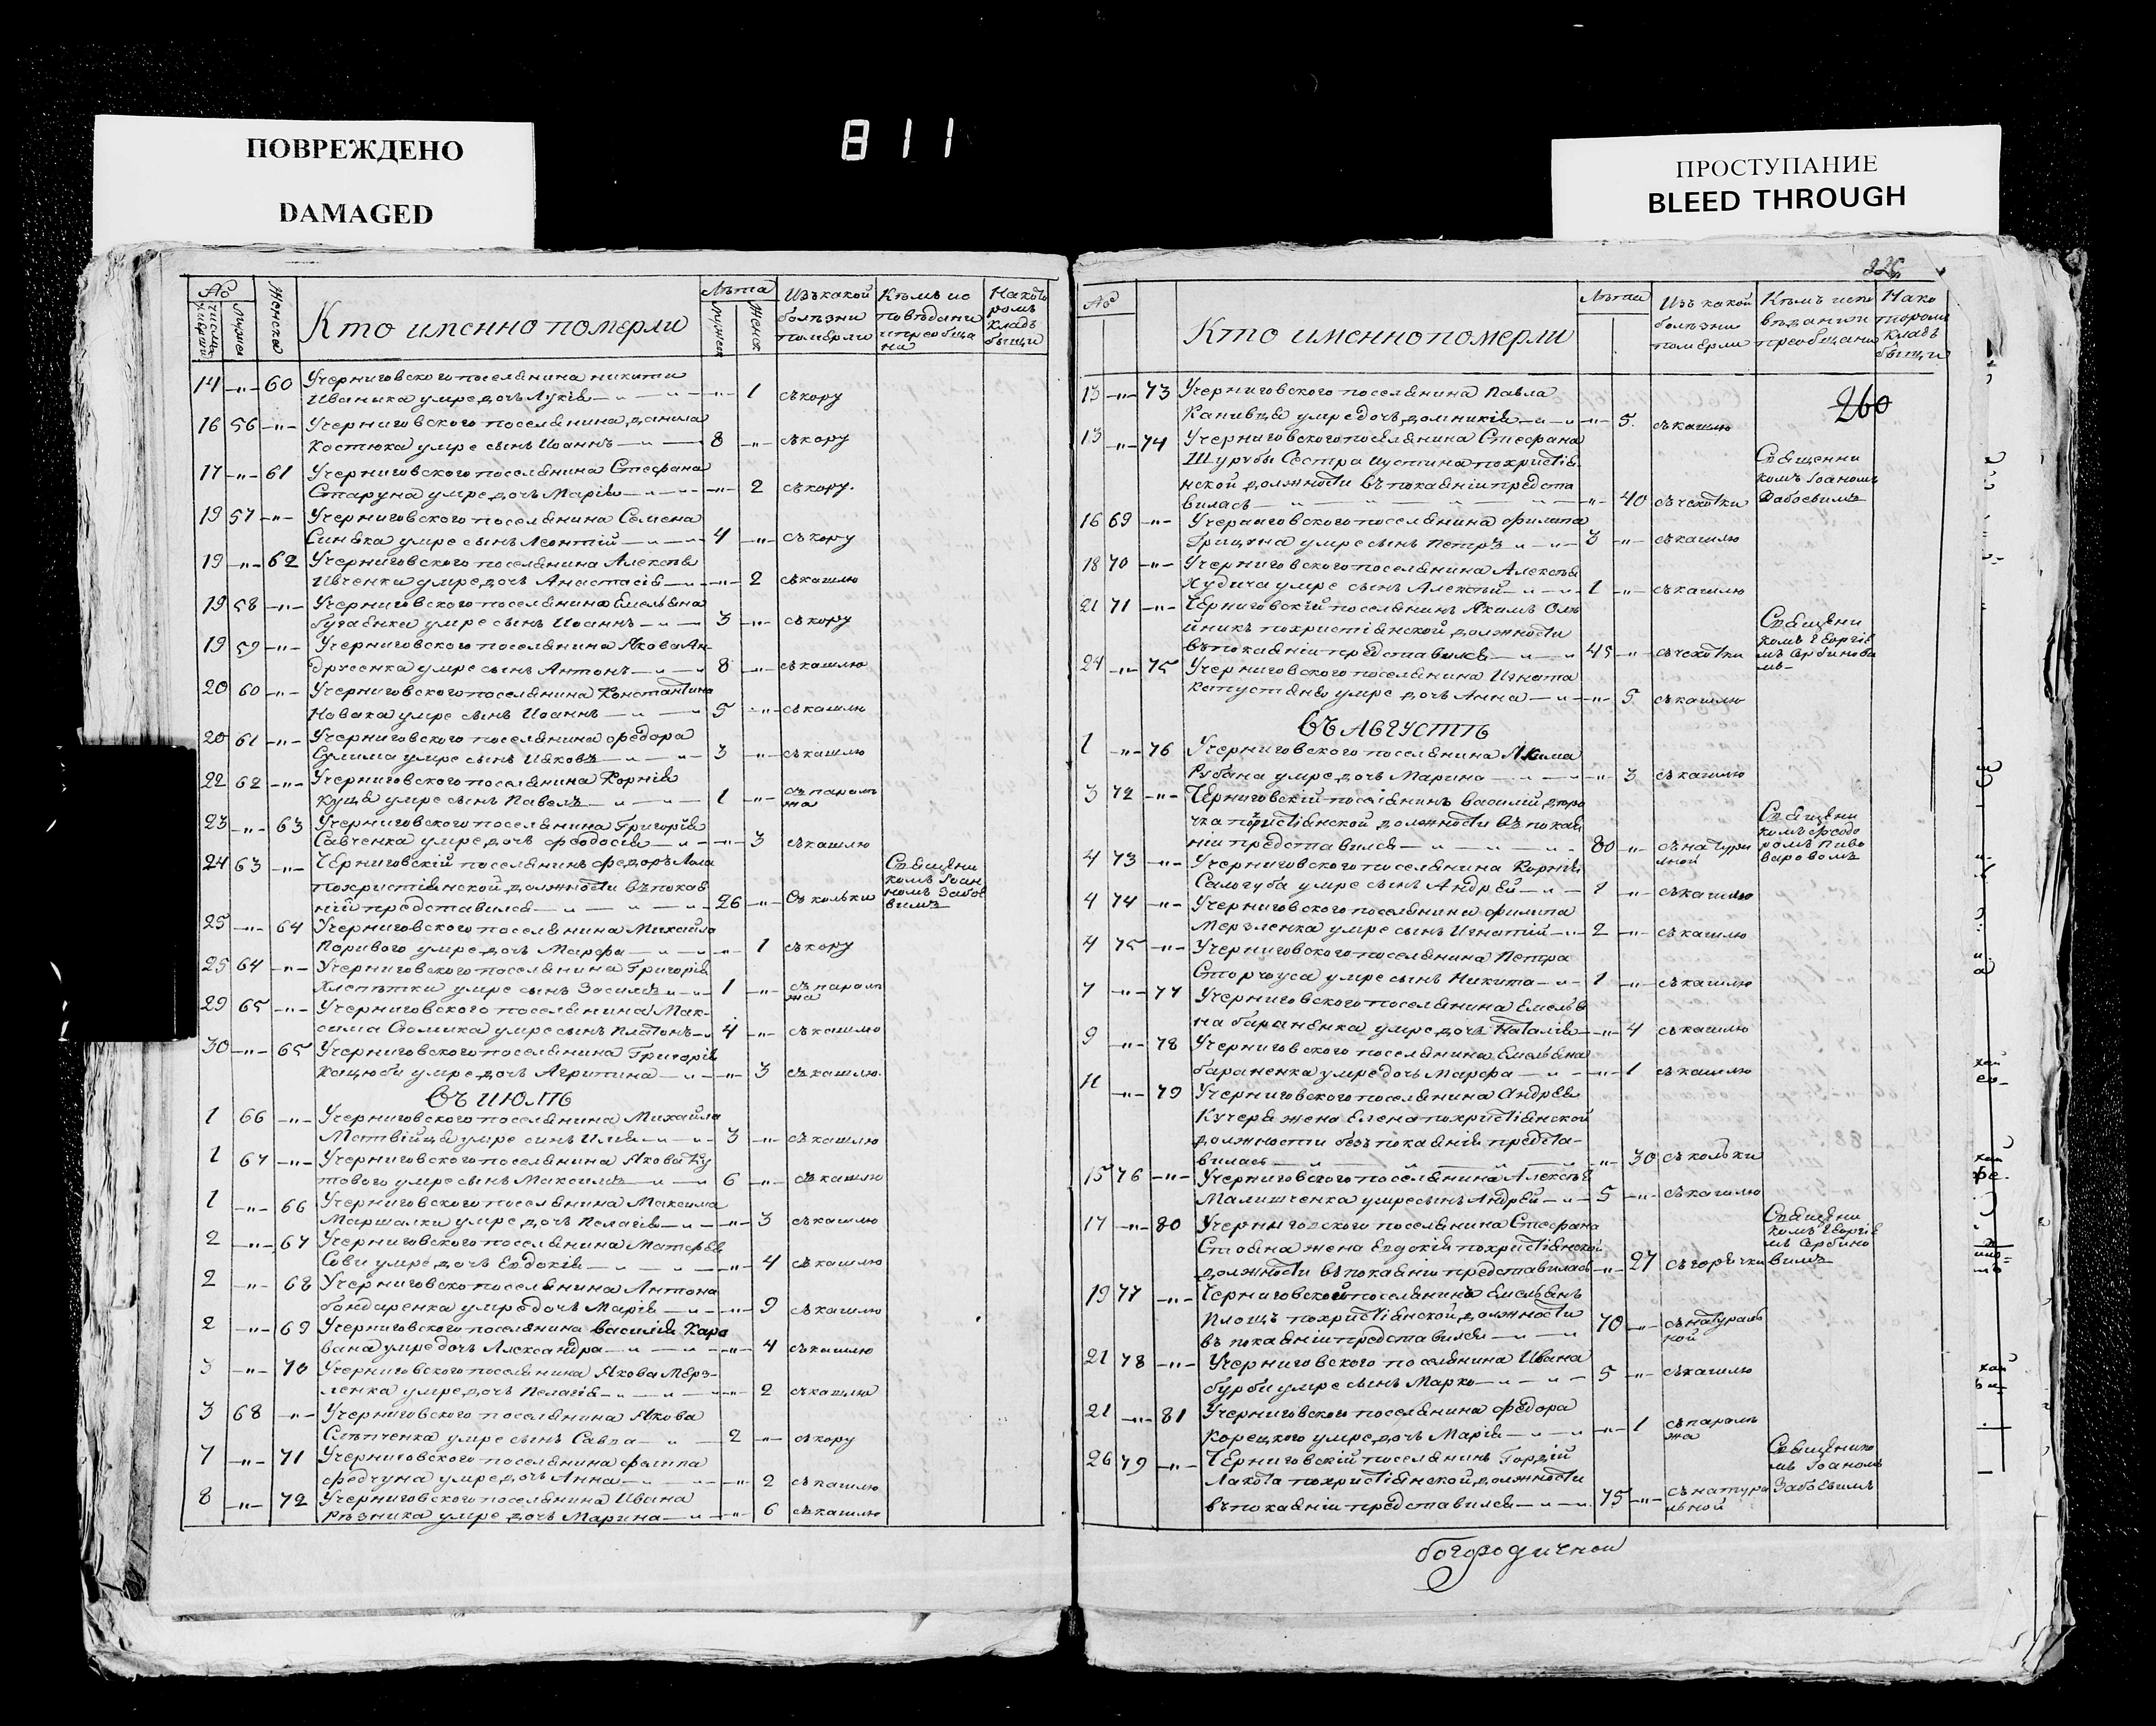 ПОВРЕЖДЕНО
DAMAGED
811
ПРОСТУПАНИЕ
BLEED THROUGH
№ Женска Кто именно померли Лѣта Изъ какой Кѣмъ ис На кото
болѣзни повѣдани ромъ
померли и преобща кладъ
ни бищи
14 -„- 60 Учерниговского поселянина никити
Иваника умре дочь Лукія -„- 1 съ кору
16 56 -„- Учерниговского поселянина данила
Костюка умре сынъ Иоаннъ 8 -„- съ кору
17 -„- 61 Учерниговского поселянина Стефана
Старуна умре дочь Марія -„- 2 съ кору.
19 57 -„- Учерниговского поселянина Семена
Синяка умре сынъ Леонтій 4 -„- съ кору
19 -„- 62 Учерниговского поселянина Алексѣя
Ивченка умре дочь Анастасія -„- 2 съ кашлю
19 58 -„- Учерниговского поселянина Емельяна
бугаенка умре сынъ Иоаннъ 3 -„- съ кору
19 59 -„- Учерниговского поселянина Якова Ан
друсенка умре сынъ Антонъ 8 -„- съ кашлю
20 60 -„- Учерниговского поселянина Константина
Новака умре сынъ Иоаннъ 5 -„- съ кашлю
20 61 -„- Учерниговского поселянина федора
Сулима умре сынъ Ияковъ 3 -„- съ кашлю
22 62 -„- Учерниговского поселянина Корнія
Куща умре сынъ Павелъ 1 -„- съ парали
жа
23 -„- 63 Учерниговского поселянина Григорія
Савченка умре дочь феодосія -„- 3 съ кашлю
24 63 -„- Черниговскій поселянинъ федоръ Лома Священи
похристіянской должности въ покая комъ Іоан
ніи представился 26 -„- Съ кольки номъ Забоѣ
вимъ
25 -„- 64 Учерниговского поселянина Михайла
Поривого умре дочь Марфа -„- 1 съ кору
25 64 -„- Учерниговского поселянина Григорія
Хлепѣтки умре сынъ Засимъ 1 -„- съ парали
жа
29 65 -„- Учерниговского поселянина Мак-
сима Сюмика умре сынъ Платонъ 4 -„- съ кашлю
30 -„- 65 Учерниговского поселянина Григорія
Коцюби умре дочь Агрипина -„- 3 съ кашлю.
ВЪ ИЮЛѢ
1 66 -„- Учерниговского поселянина Михайла
Матвійця умре синъ Илия 3 -„- съ кашлю
1 67 -„- Учерниговского поселянина Якова Ку
тового умре сынъ Максимъ 6 -„- съ кашлю
1 -„- 66 Учерниговского поселянина Максима
Маршалки умре дочь Пелагія -„- 3 съ кашлю
2 -„- 67 Учерниговского поселянина Матфея
Сови умре дочь Евдокія -„- 4 съ кашлю
2 -„- 68 Учерниговско поселянина Антона
бондаренка умре дочь Марія -„- 9 съ кашлю
2 -„- 69 Учерниговского поселянина василія Кара
вана умре дочь Александра -„- 4 съ кашлю
3 -„- 70 Учерниговского поселянина Якова Мерз-
ленка умре дочь Пелагія -„- 2 съ кашлю
3 68 -„- Учерниговского поселянина Якова
Слѣпченка умре сынъ Савва 2 -„- съ кору
7 -„- 71 Учерниговского поселянина филипа
федчуна умре дочь Анна -„- 2 съ кашлю
8 -„- 72 Учерниговского поселянина Ивана
Рѣзника умре дочь Марина -„- 6 съ кашлю
№ Кто именно померли Лѣта Изъ какой Кѣмъ испо Нако
болѣзни вѣдании торомъ
померли преобщани кладъ
бищи
260
13 -„- 73 Учерниговского поселянина Павла
Канивця умре дочь домникія -„- 5. съ кашлю
13 -„- 74 Учерниговского поселянина Стефана
Шуруби Сестра Иустина похристія- Священни
нской должности въ покаяніи предста комъ Іоаномъ
вилась -„- 40 съ чехотки Забоевимъ
16 69 -„- Учерниговского поселянина филипа
Грицина умре сынъ Петръ 3 -„- съ кашлю
18 70 -„- Учерниговского поселянина Алексѣя
Худича умре сынъ Алексѣй 1 -„- съ кашлю
21 71 -„- Черниговскій поселянинъ Якимъ Оли Священи
йникъ похристіянской должности комъ Георгіе
въ покаяніи представился 45 -„- съ чехотки мъ Сербинови
мъ-
24 -„- 75 Учерниговского поселянина Игната
Капустяна умре дочь Анна -„- 5 съ кашлю
ВЪ АВГУСТѢ
1 -„- 76 Учерниговского поселянина Якима
Рубана умре дочь Марина -„- 3 съ кашлю
3 72 -„- Черниговскій поселянинъ василій дяро Священи
чка похристіянской должности въ покая комъ феодо
ніи представился 80 -„- съ натура ромъ Пиво
лной варовомъ
4 73 -„- Учерниговского поселянина Корнія
Самогуба умре сынъ Андрей 1 -„- съ кашлю
4 74 -„- Учерниговского поселянина филипа
Мерзленка умре сынъ Игнатій 2 -„- съ кашлю
4 75 -„- Учерниговского поселянина Петра
Сторчоуса умре сынъ Никита 1 -„- съ кашлю
7 -„- 77 Учерниговского поселянина Емелья
на бараненка умре дочь Наталія -„- 4 съ кашлю
9 -„- 78 Учерниговского поселянина Емельяна
бараненка умре дочь Марфа -„- 1 съ кашлю
11 -„- 79 Учерниговского поселянина Андрея
Кучера жена Елена похристіянской
должности безъ покаянія предста-
вилась -„- 30 съ кольки
15 76 -„- Учерниговского поселянина Алексѣя
Малишченка умре сынъ Андрей 5 -„- съ кашлю
17 -„- 80 Учерниговского поселянина Стефана Священи
Стояна жена Евдокія похристіянской комъ Георгіе
должности въ покаяніи представилась -„- 27 съ горячки мъ Сербино
вимъ
19 77 -„- Черниговской поселянинъ Емельянъ
Площъ похристіянской должности
въ покаяніи представился 70 -„- съ натураль
ной
21 78 -„- Учерниговского поселянина Ивана
бурби умре сынъ Марко 5 -„- съ кашлю
21 -„- 81 Учерниговского поселянина федора
Корецкого умре дочь Марія -„- 1 съ паралѣ
жа
26 79 -„- Черниговскій поселянинъ Гордій Священико
Лакота похристіянской должности мъ Іоаномъ
въ покаяніи представился 75 -„- съ натура Забоевимъ
льной
богородичной